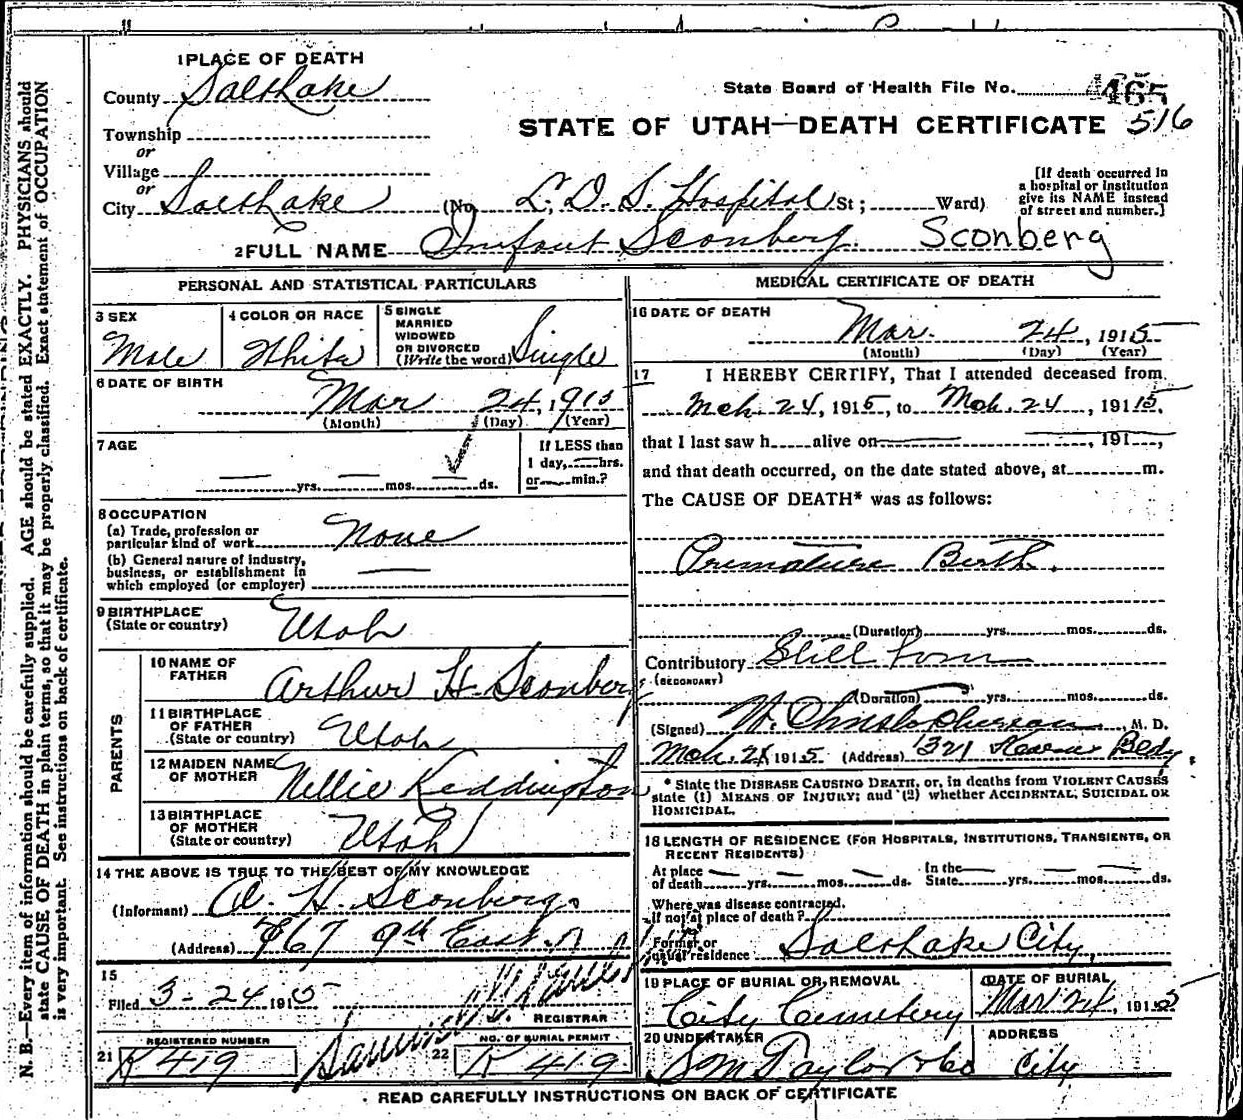 1 PLACE OF DEATH
County Salt Lake
State Board of Health File No. 465
Township
or
STATE OF UTAH—DEATH CERTIFICATE 516
Village
or
City Salt Lake (No. L. D. S. Hospital St; Ward)
[If death occurred in a hospital or institution give its NAME instead of street and number.]
2 FULL NAME Infant Sconberg Sconberg
PERSONAL AND STATISTICAL PARTICULARS
3 SEX
Male
4 COLOR OR RACE
White
5 SINGLE MARRIED WIDOWED OR DIVORCED (Write the word) Single
6 DATE OF BIRTH
Mar 24, 1915
(Month) (Day) (Year)
7 AGE
yrs. mos. ds.
If LESS than
1 day, hrs.
or min.?
8 OCCUPATION
(a) Trade, profession or particular kind of work None
(b) General nature of industry, business, or establishment in which employed (or employer)
9 BIRTHPLACE
(State or country) Utah
PARENTS
10 NAME OF FATHER Arthur H. Sconberg
11 BIRTHPLACE OF FATHER (State or country) Utah
12 MAIDEN NAME OF MOTHER Nellie Keddington
13 BIRTHPLACE OF MOTHER (State or country) Utah
14 THE ABOVE IS TRUE TO THE BEST OF MY KNOWLEDGE
(Informant) A. H. Sconberg
(Address) 767 9th East
15
Filed 3-24 1915
REGISTRAR
21 REGISTERED NUMBER
K 419
22 NO. OF BURIAL PERMIT
K 419
MEDICAL CERTIFICATE OF DEATH
16 DATE OF DEATH
Mar. 24, 1915
(Month) (Day) (Year)
17 I HEREBY CERTIFY, That I attended deceased from
Mch. 24, 1915, to Mch. 24, 1915,
that I last saw h alive on , 191 ,
and that death occurred, on the date stated above, at m.
The CAUSE OF DEATH* was as follows:
Premature Birth.
(Duration) yrs. mos. ds.
Contributory Still born
(SECONDARY)
(Duration) yrs. mos. ds.
(Signed) Christopherson M. D.
Mch. 24 1915 (Address) 321
* State the DISEASE CAUSING DEATH, or, in deaths from VIOLENT CAUSES
state (1) MEANS OF INJURY; and (2) whether ACCIDENTAL, SUICIDAL OR
HOMICIDAL.
18 LENGTH OF RESIDENCE (FOR HOSPITALS, INSTITUTIONS, TRANSIENTS, OR
RECENT RESIDENTS)
At place of death yrs. mos. ds. In the State yrs. mos. ds.
Where was disease contracted,
if not at place of death?
Former or usual residence Salt Lake City
19 PLACE OF BURIAL OR REMOVAL
City Cemetery
DATE OF BURIAL
Mar 24, 1915
20 UNDERTAKER
S M Taylor & Co
ADDRESS
City
READ CAREFULLY INSTRUCTIONS ON BACK OF CERTIFICATE
N. B.—Every item of information should be carefully supplied. AGE should be stated EXACTLY. PHYSICIANS should
state CAUSE OF DEATH in plain terms, so that it may be properly classified. Exact statement of OCCUPATION
is very important. See instructions on back of certificate.